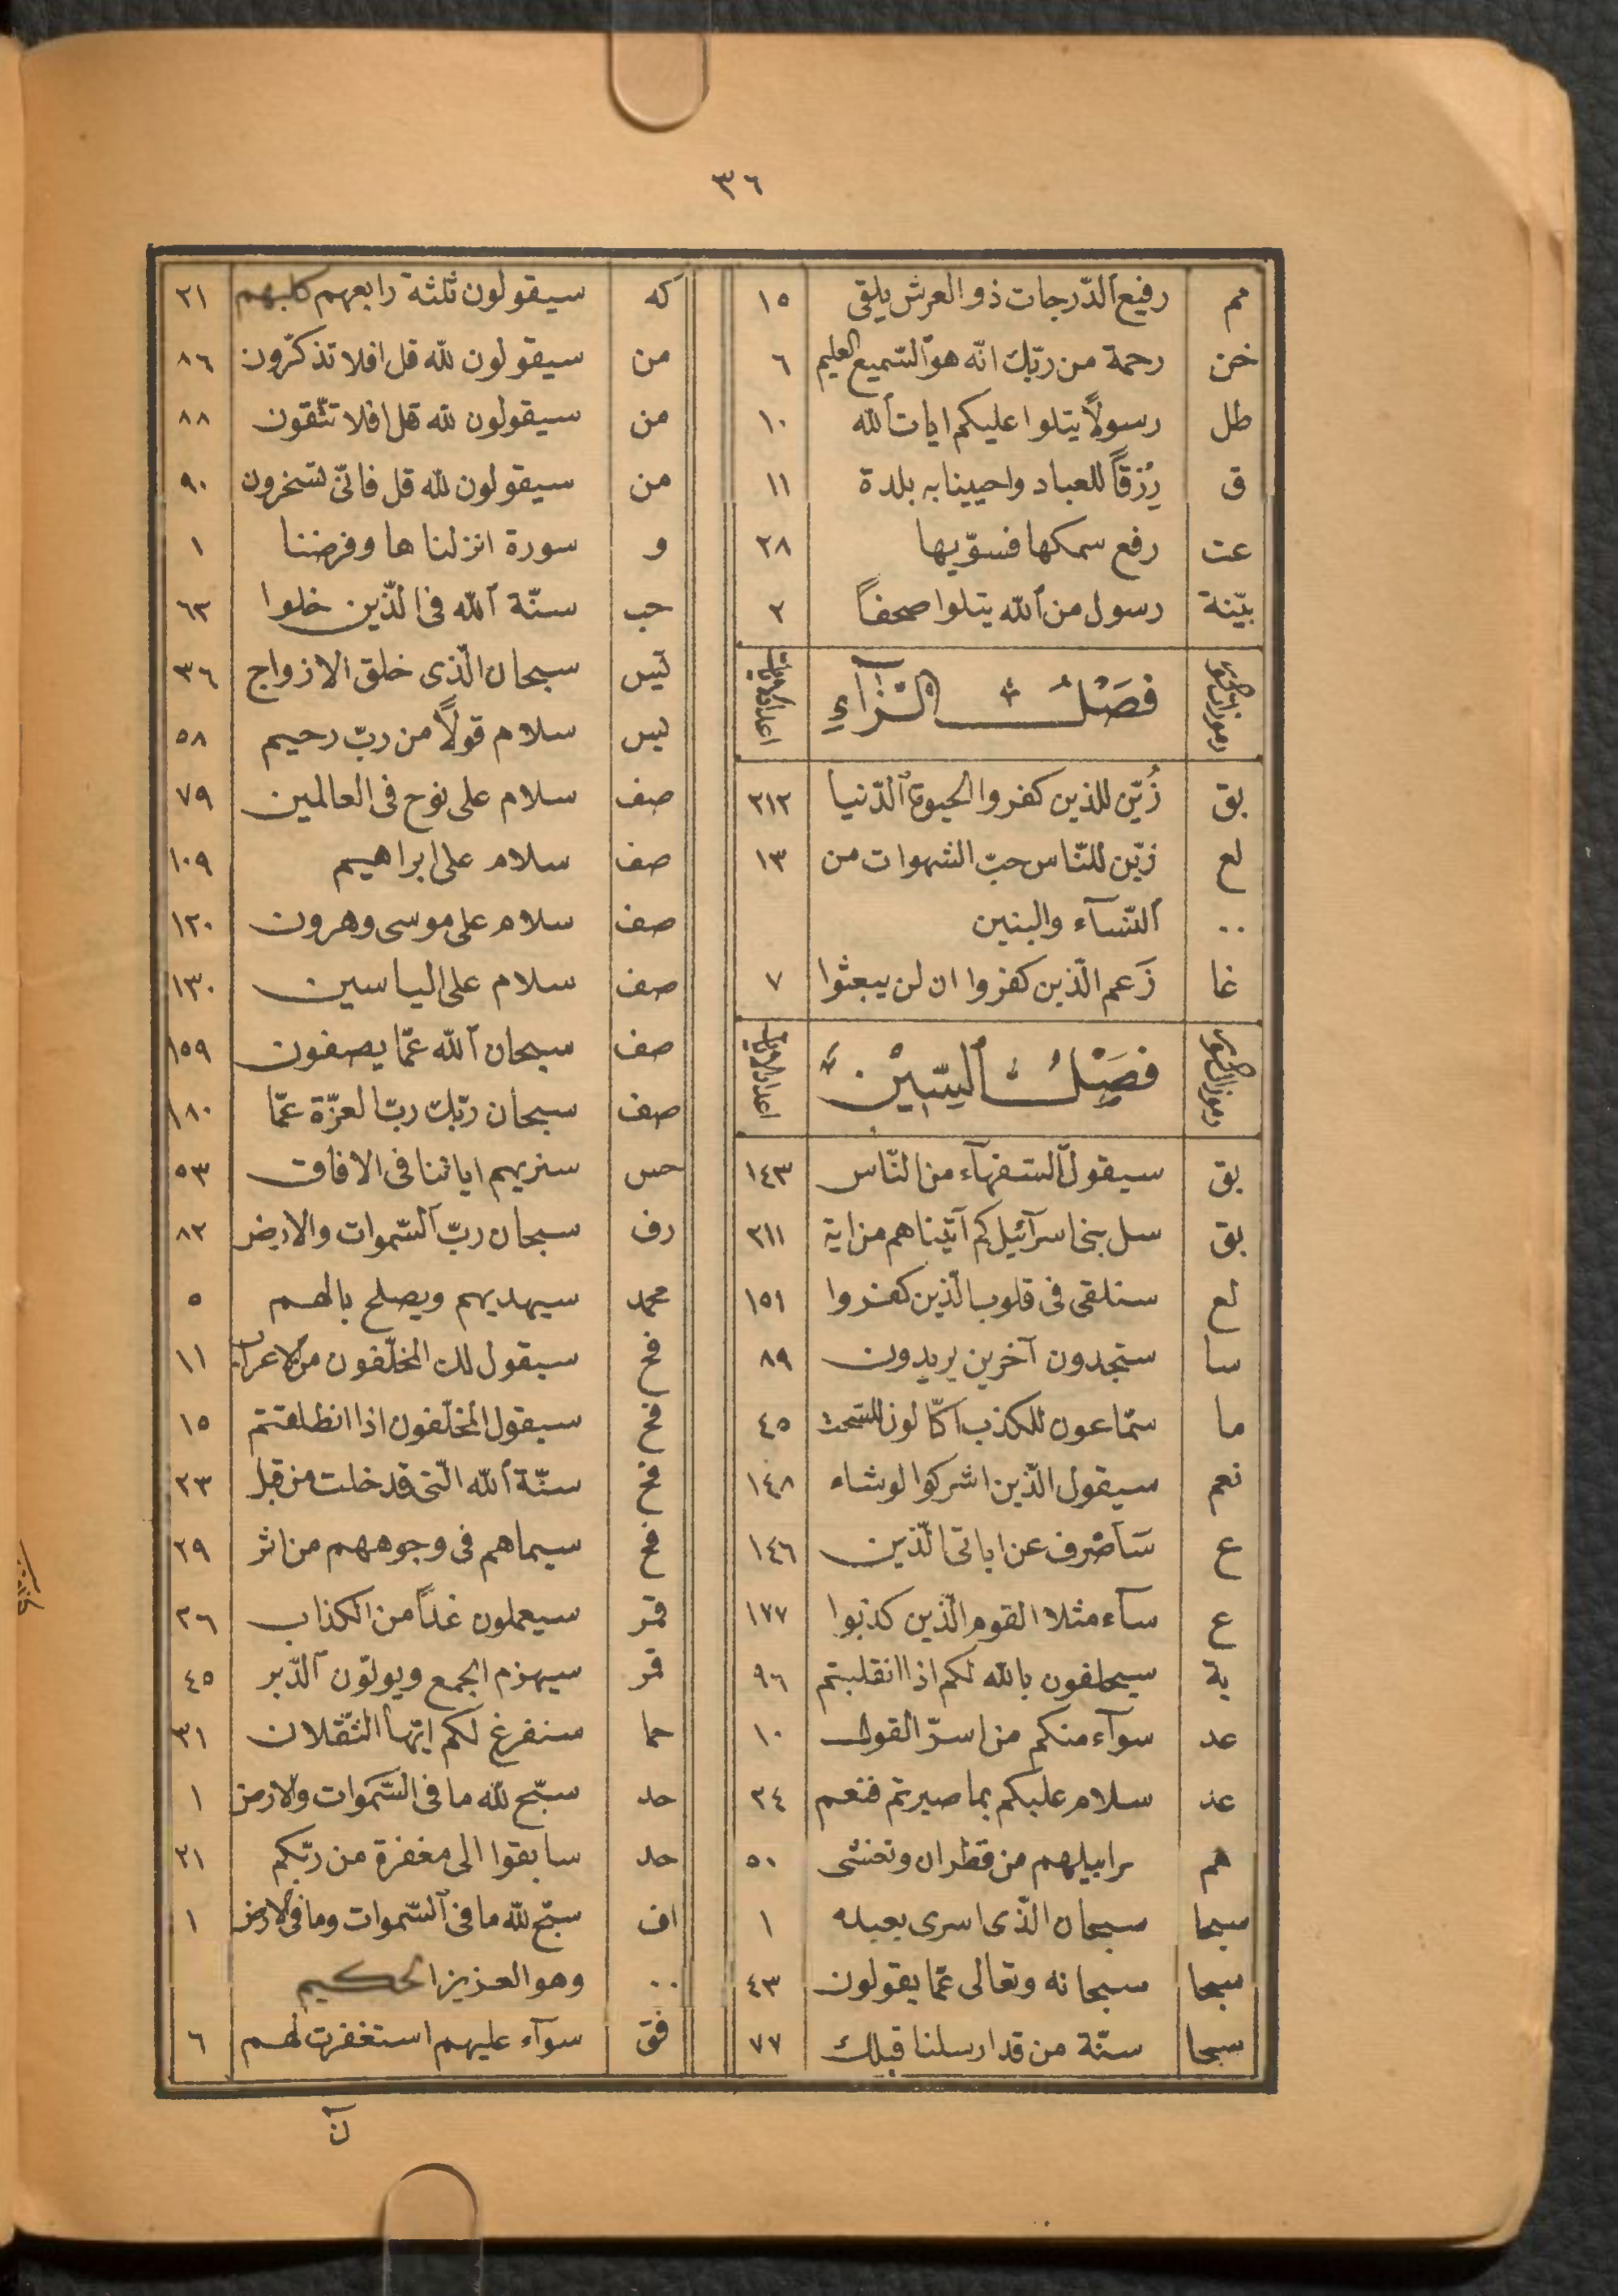 ٣٦
مم رفيع الدّرجات ذو العرش يلقى ١٥
خن رحمة من ربّك انّه هو السّميع العليم ٦
طل رسولاً يتلوا عليكم ايات الله ١٠
ق رزقاً للعباد واحيينا به بلدة ١١
عت رفع سمكها فسوّيها ٢٨
بيّنة رسول من الله يتلوا صحفاً ٢
رموزات السّور فصل الزّاء اعداد الايات
بق زُيّن للذين كفروا الحيوة الدّنيا ٢١٢
لع زيّن للنّاس حبّ الشهوات من ١٣
.. النّسآء والبنين
غا زَعم الّذين كفروا ان لن يبعثوا ٧
رموزات السّور فصل السّين اعداد الايات
بق سيقول السّفهآء من النّاس ١٤٣
بق سل بنى اسرآئيل كم آتيناهم من اية ٢١١
لع سنلقى فى قلوب الّذين كفروا ١٥١
سا ستجدون آخرين يريدون ٨٩
ما سمّاعون للكذب اكّالون للسّحت ٤٥
نعم سيقول الّذين اشركوا لوشاء ١٤٨
ع سَاَصْرف عن اياتى الّذين ١٤٦
ع سآء مثلا القوم الّذين كذبوا ١٧٧
بة سيحلفون بالله لكم اذا انقلبتم ٩٦
عد سوآء منكم من اسرّ القول ١٠
عد سلام عليكم بما صبرتم فنعم ٢٤
هم سرابيلهم من قطران وتغشى ٥٠
سبحا سبحان الّذى اسرى بعبده ١
سبحا سبحانه وتعالى عمّا يقولون ٤٣
سبحا سنّة من قد ارسلنا قبلك ٧٧
كه سيقولون ثلثة رابعهم كلبهم ٢١
من سيقولون لله قل افلا تذكّرون ٨٦
من سيقولون لله قل افلا تتّقون ٨٨
من سيقولون لله قل فانّى تسخرون ٩٠
و سورة انزلناها وفرضنا ١
حب سنّة الله فى الّذين خلوا ٦٢
يس سبحان الّذى خلق الازواج ٣٦
يس سلام قولاً من ربّ رحيم ٥٨
صف سلام على نوح فى العالمين ٧٩
صف سلام على ابراهيم ١٠٩
صف سلام على موسى وهرون ١٢٠
صف سلام على الياسين ١٣٠
صف سبحان الله عمّا يصفون ١٥٩
صف سبحان ربّك ربّ العزّة عمّا ١٨٠
حس سنريهم اياتنا فى الافاق ٥٣
رف سبحان ربّ السّموات والارض ٨٢
محمد سيهديهم ويصلح بالهم ٥
فح سيقول لك المخلّفون من الاعراب ١١
فح سيقول المخلّفون اذا انطلقتم ١٥
فح سنّة الله الّتى قد خلت من قبل ٢٣
فح سيماهم فى وجوههم من اثر ٢٩
قمر سيعملون غداً من الكذاب ٢٦
قمر سيهزم الجمع ويولّون الدّبر ٤٥
حما سنفرغ لكم ايّها الثّقلان ٣١
حد سبّح لله ما فى السّموات والارض ١
حد سابقوا الى مغفرة من ربّكم ٢١
اف سبّح لله ما فى السّموات وما فى الارض ١
.. وهو العزيز الحكيم
فق سوآء عليهم استغفرت لهم ٦
نٓ